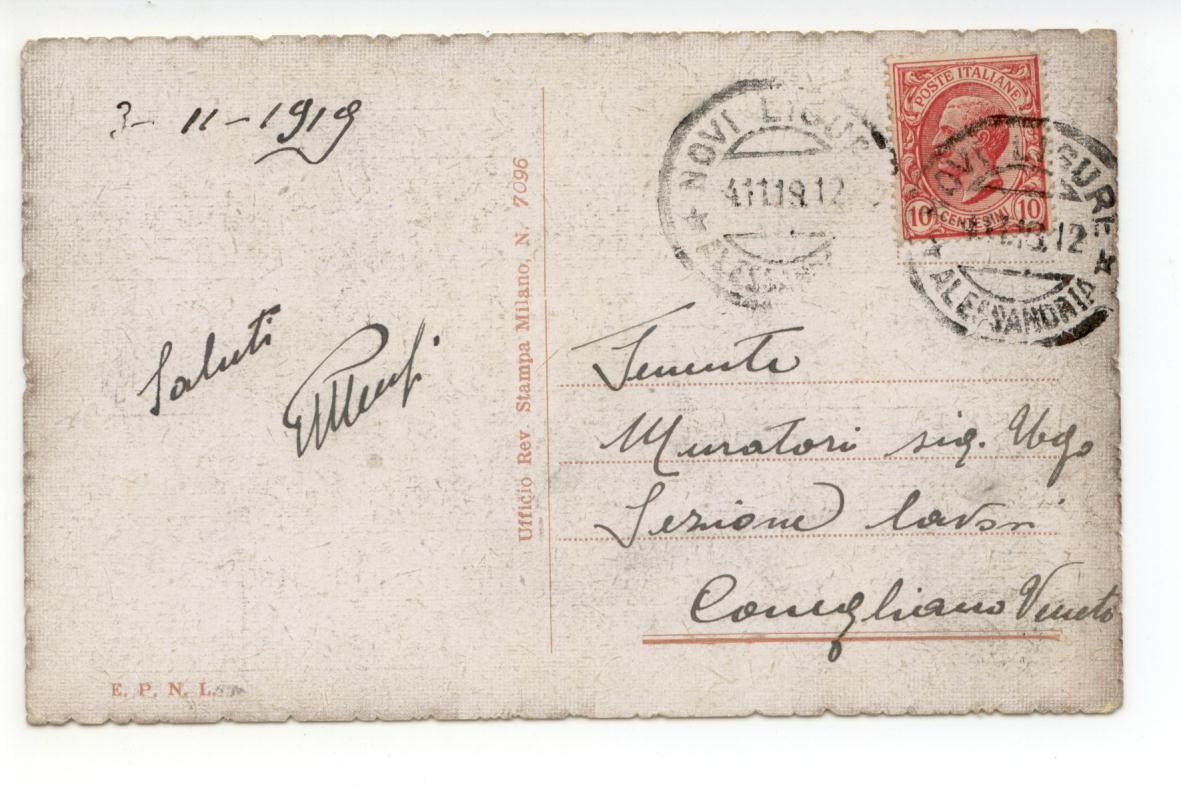 3-11-1919
Saluti
Ufficio Rev Stampa Milano, N. 7096
E. P. N. L.
POSTE ITALIANE
10 CENTESIMI 10
NOVI LIGURE
4.11.19.12
ALESSANDRIA
NOVI LIGURE
12
ALESSANDRIA
Tenente
Muratori sig. Ugo
Sezione lavori
Conegliano Veneto